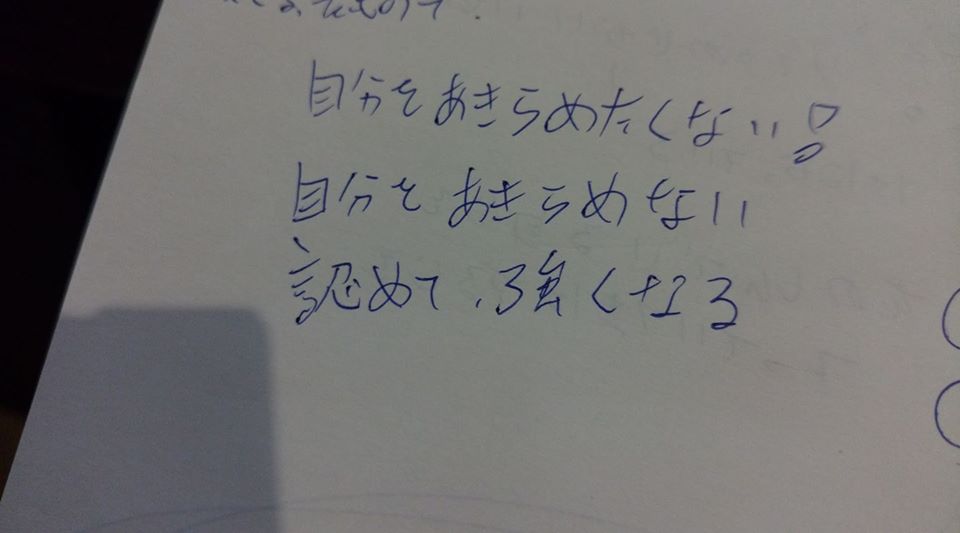 自分をあきらめたくない!
自分をあきらめない
認めて、強くなる